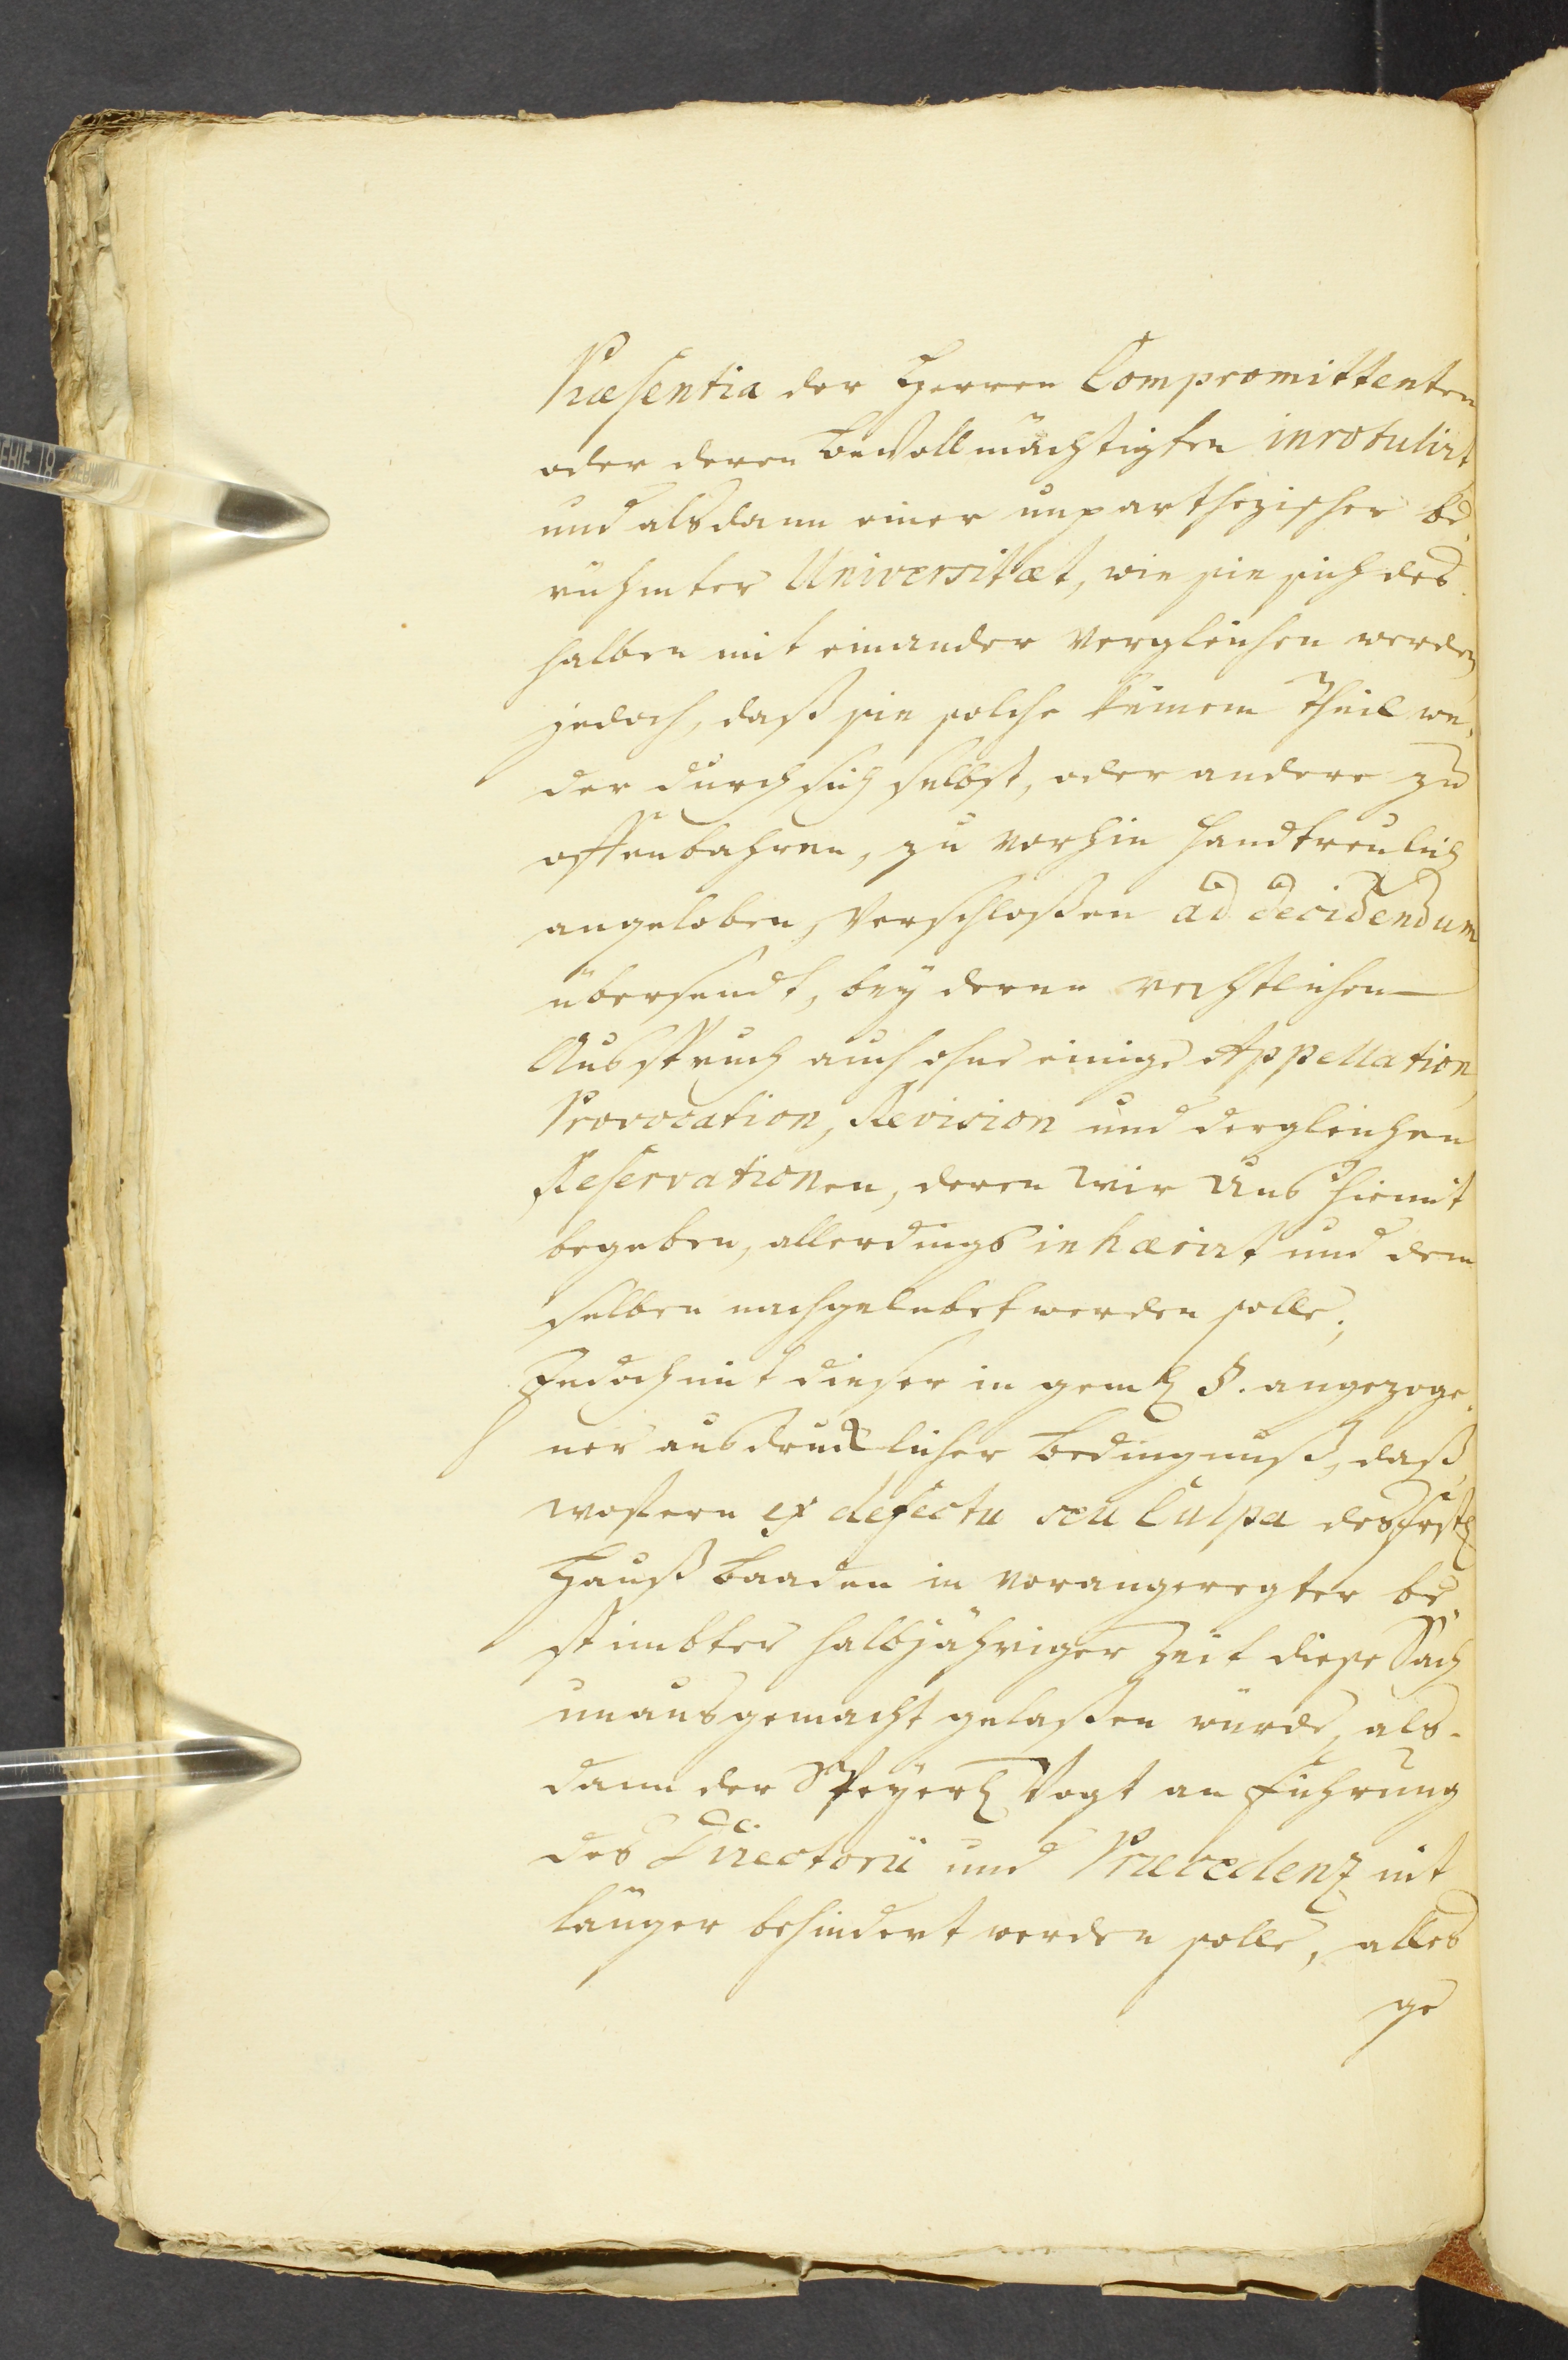 Præsentia der Herren Compromittenten
oder deren Bevollmächtigten inrotulirt
und alsdann einer unparthezischer be-
rühmter Universitæt, wie sie sich des-
halben mit einander vergleichen werden
jedoch, daß sie solche keinem Theil we-
der durch sich selbst, oder andere zu
offenbahren, zu vorhin handtreulich
angeloben, verschloßen ad decidendum
übersendt, bey deren rechtlichen
Ausspruch auch ohne einige Appellation,
Provocation, Revision und dergleichen
Reservationen, deren wir uns hiemit
begeben, allerdings inhærirt und dem
selben nachgelebet werden solle,
Jedoch mit dieser in gemh §. angezoge-
ner ausdrucklicher Bedingnuß, daß
wofern ex defectu seu Culpa des fürstl
Hauß Baaden in vorangeregter be-
stimbter halbjähriger Zeit diese Sach
unausgemacht gelaßen würde, als-
dann der Speyerl Vogt an führung
des Directorii und Præcedenz nit
länger behindert werden solle, alles
ge